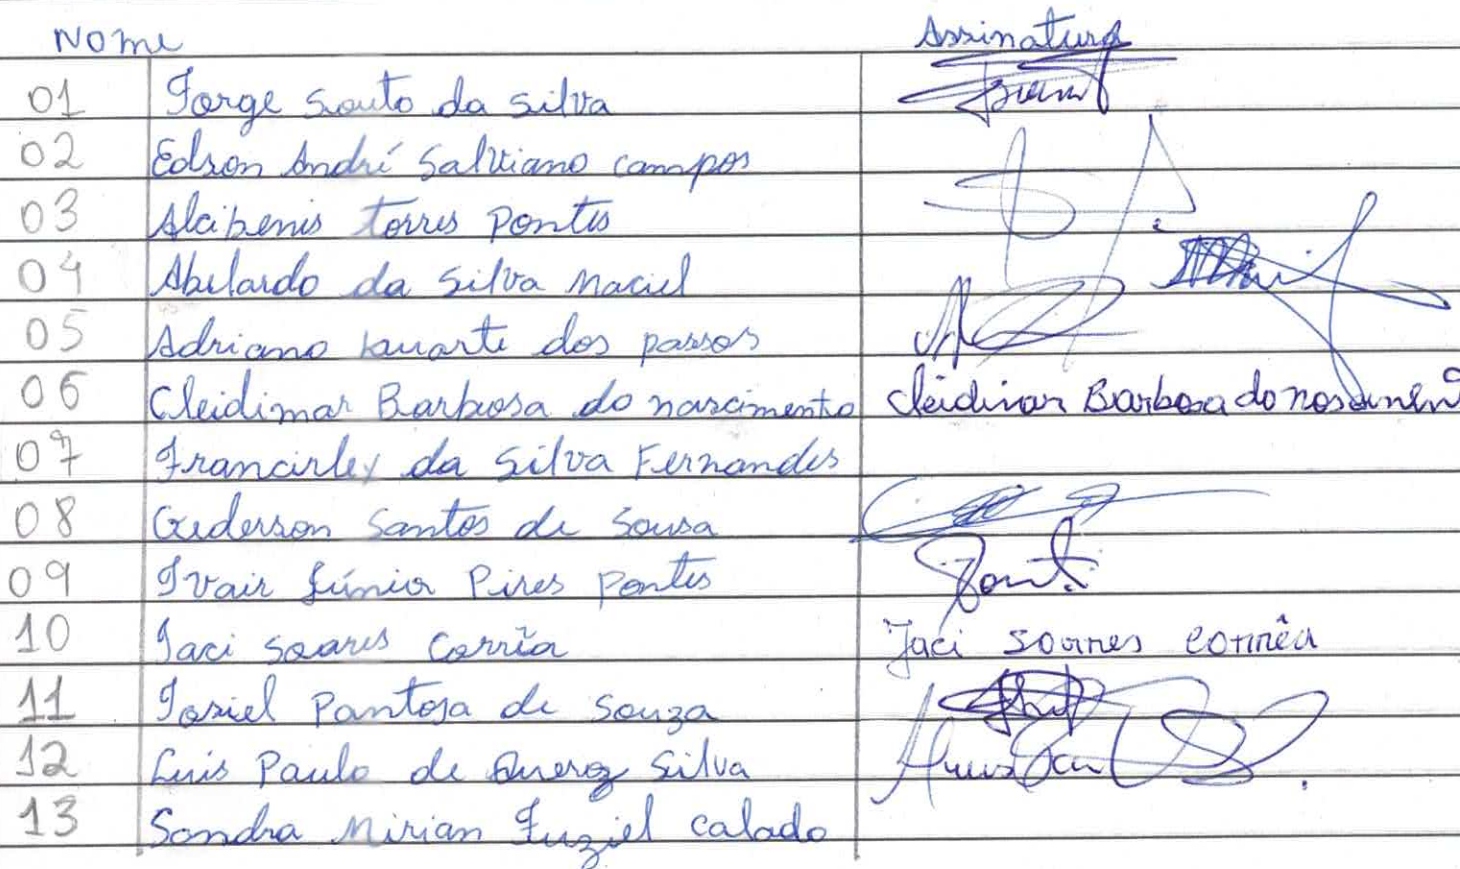 Nome Assinatura
01 Jorge Souto da Silva
02 Edson André Salviano Campos
03 Alcibenis Torres Pontes
04 Abelardo da Silva Maciel
05 Adriano Duarte dos Passos
06 Cleidimar Barbosa do nascimento Cleidimar Barbosa do
07 Francirley da Silva Fernandes
08 Gederson Santos de Sousa
09 Ivair Júnior Pires Pontes
10 Jaci Soares Corrêa Jaci Soares Corrêa
11 Joziel Pantoja de Souza
12 Luis Paulo de Silva
13 Sandra Mirian Fuziel Calado